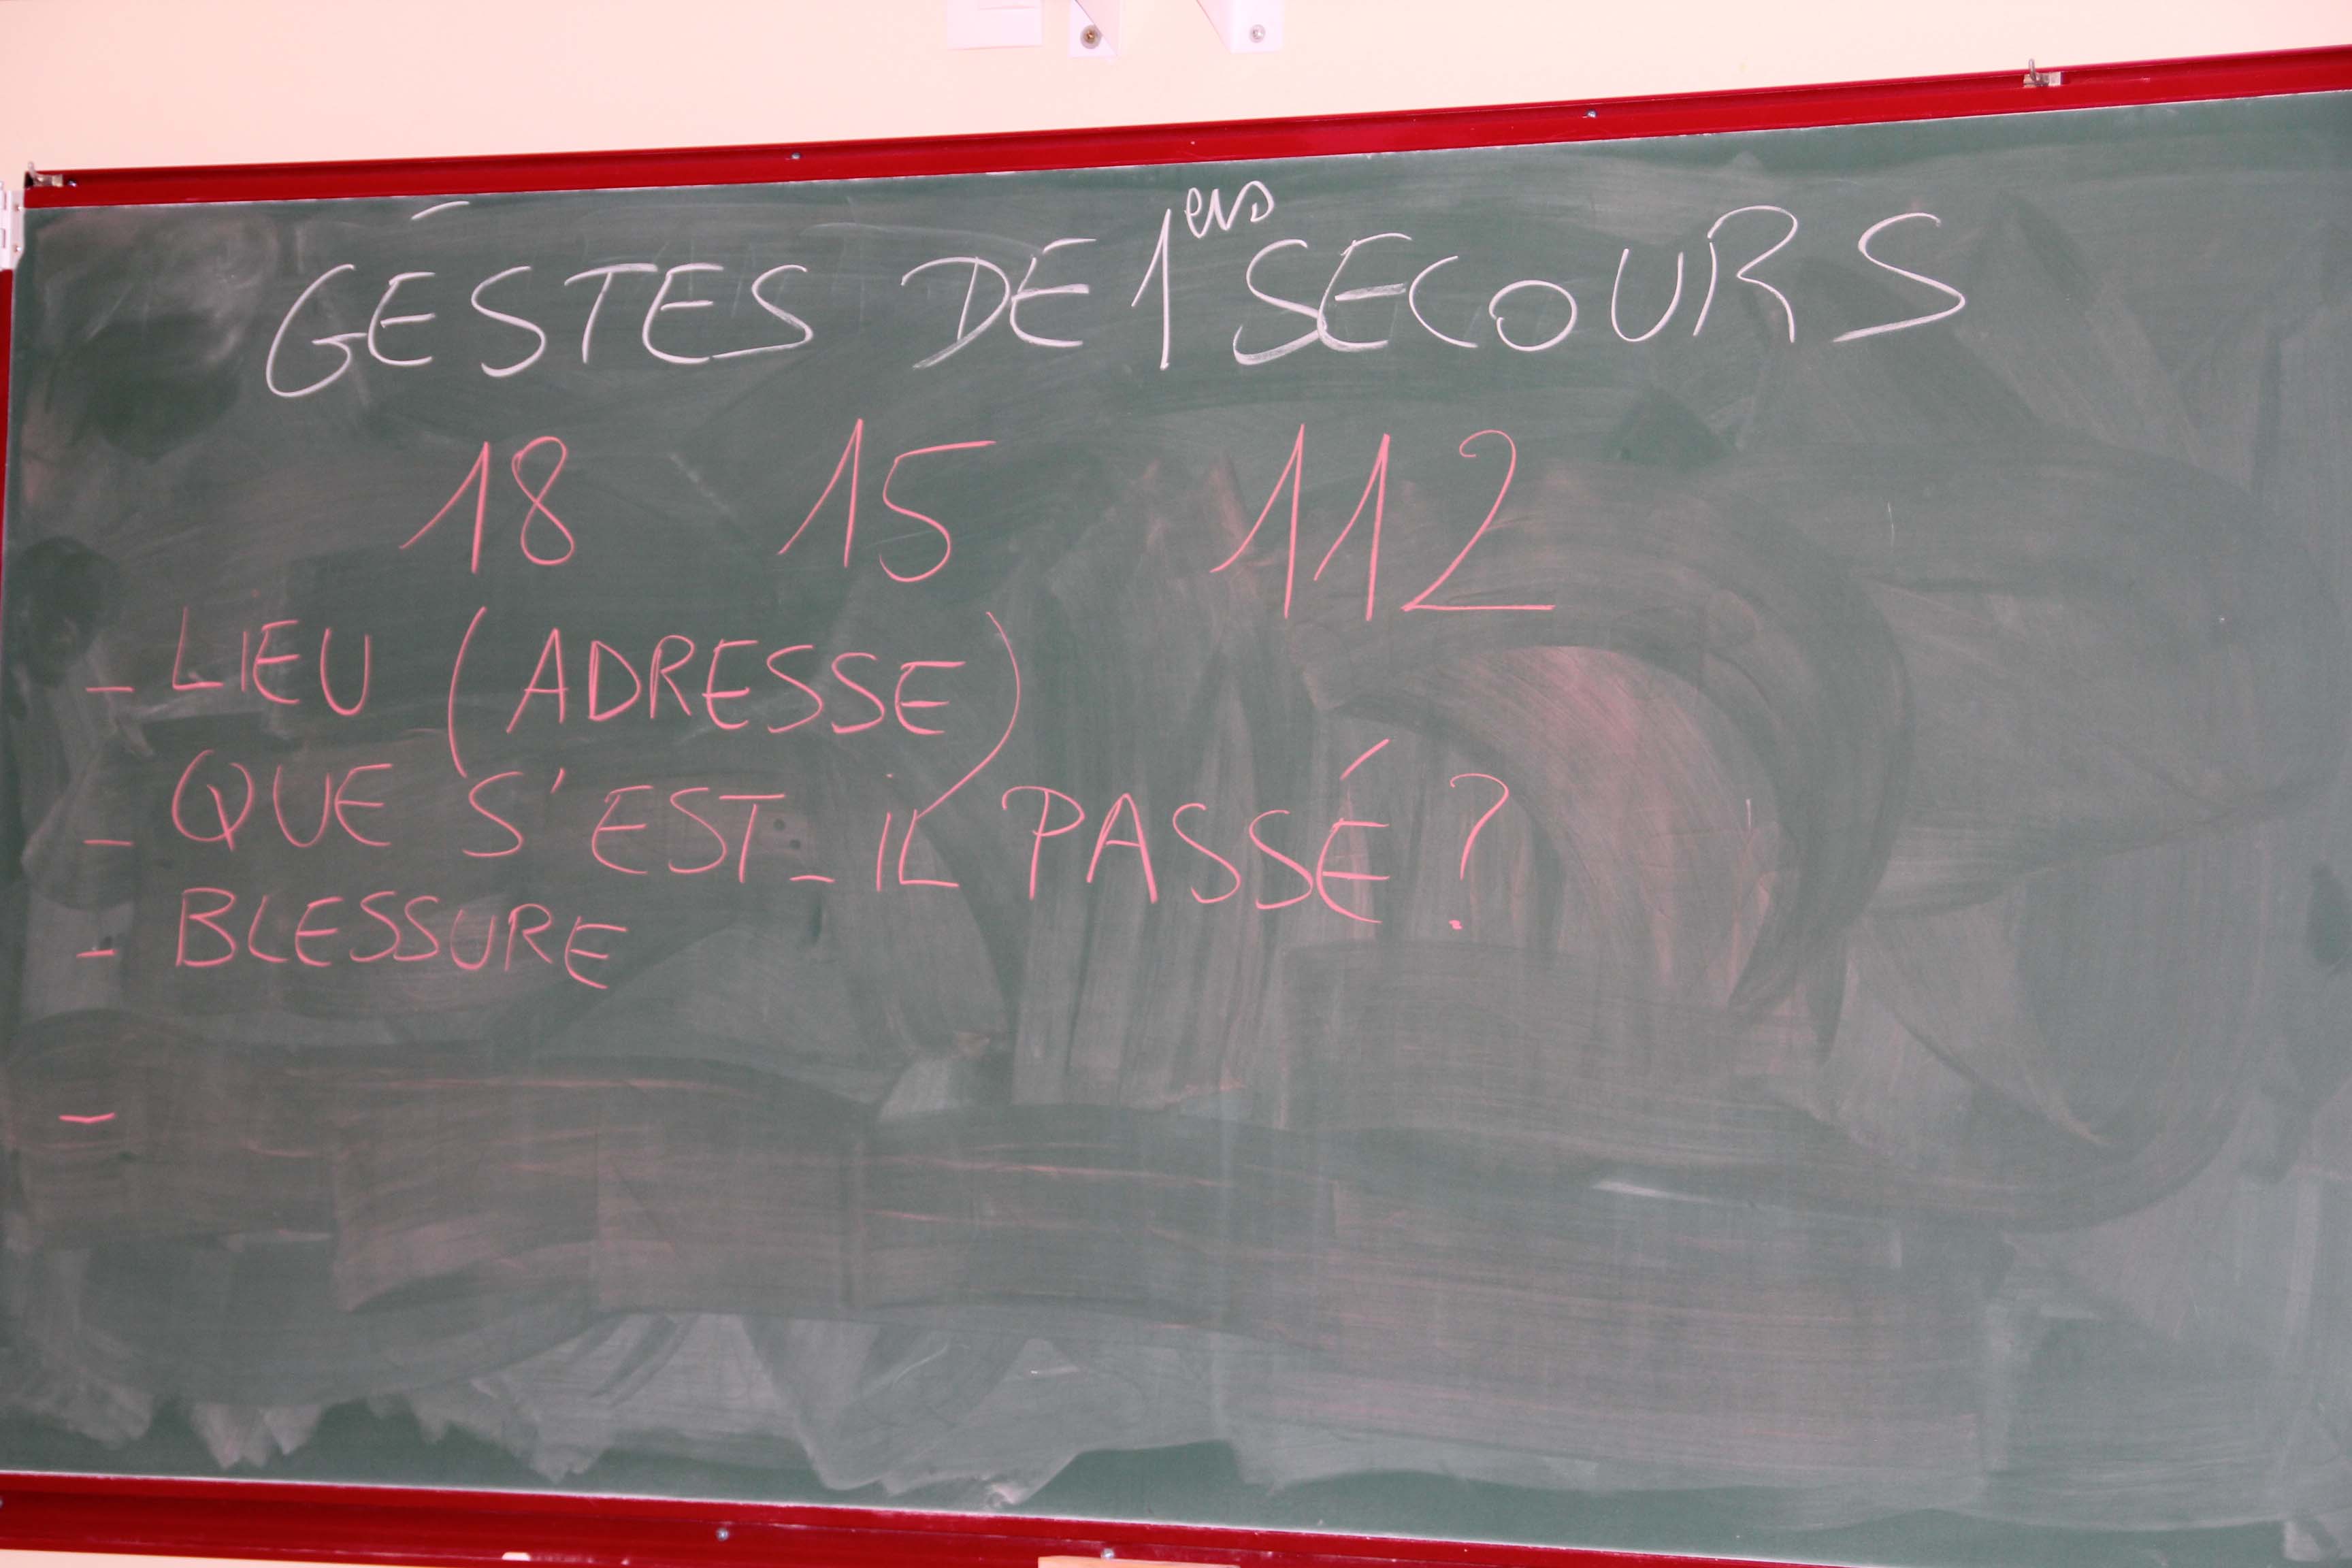 GESTES DE 1ers SECOURS
18 15 112
- LIEU (ADRESSE)
- QUE S'EST-IL PASSÉ ?
- BLESSURE
-